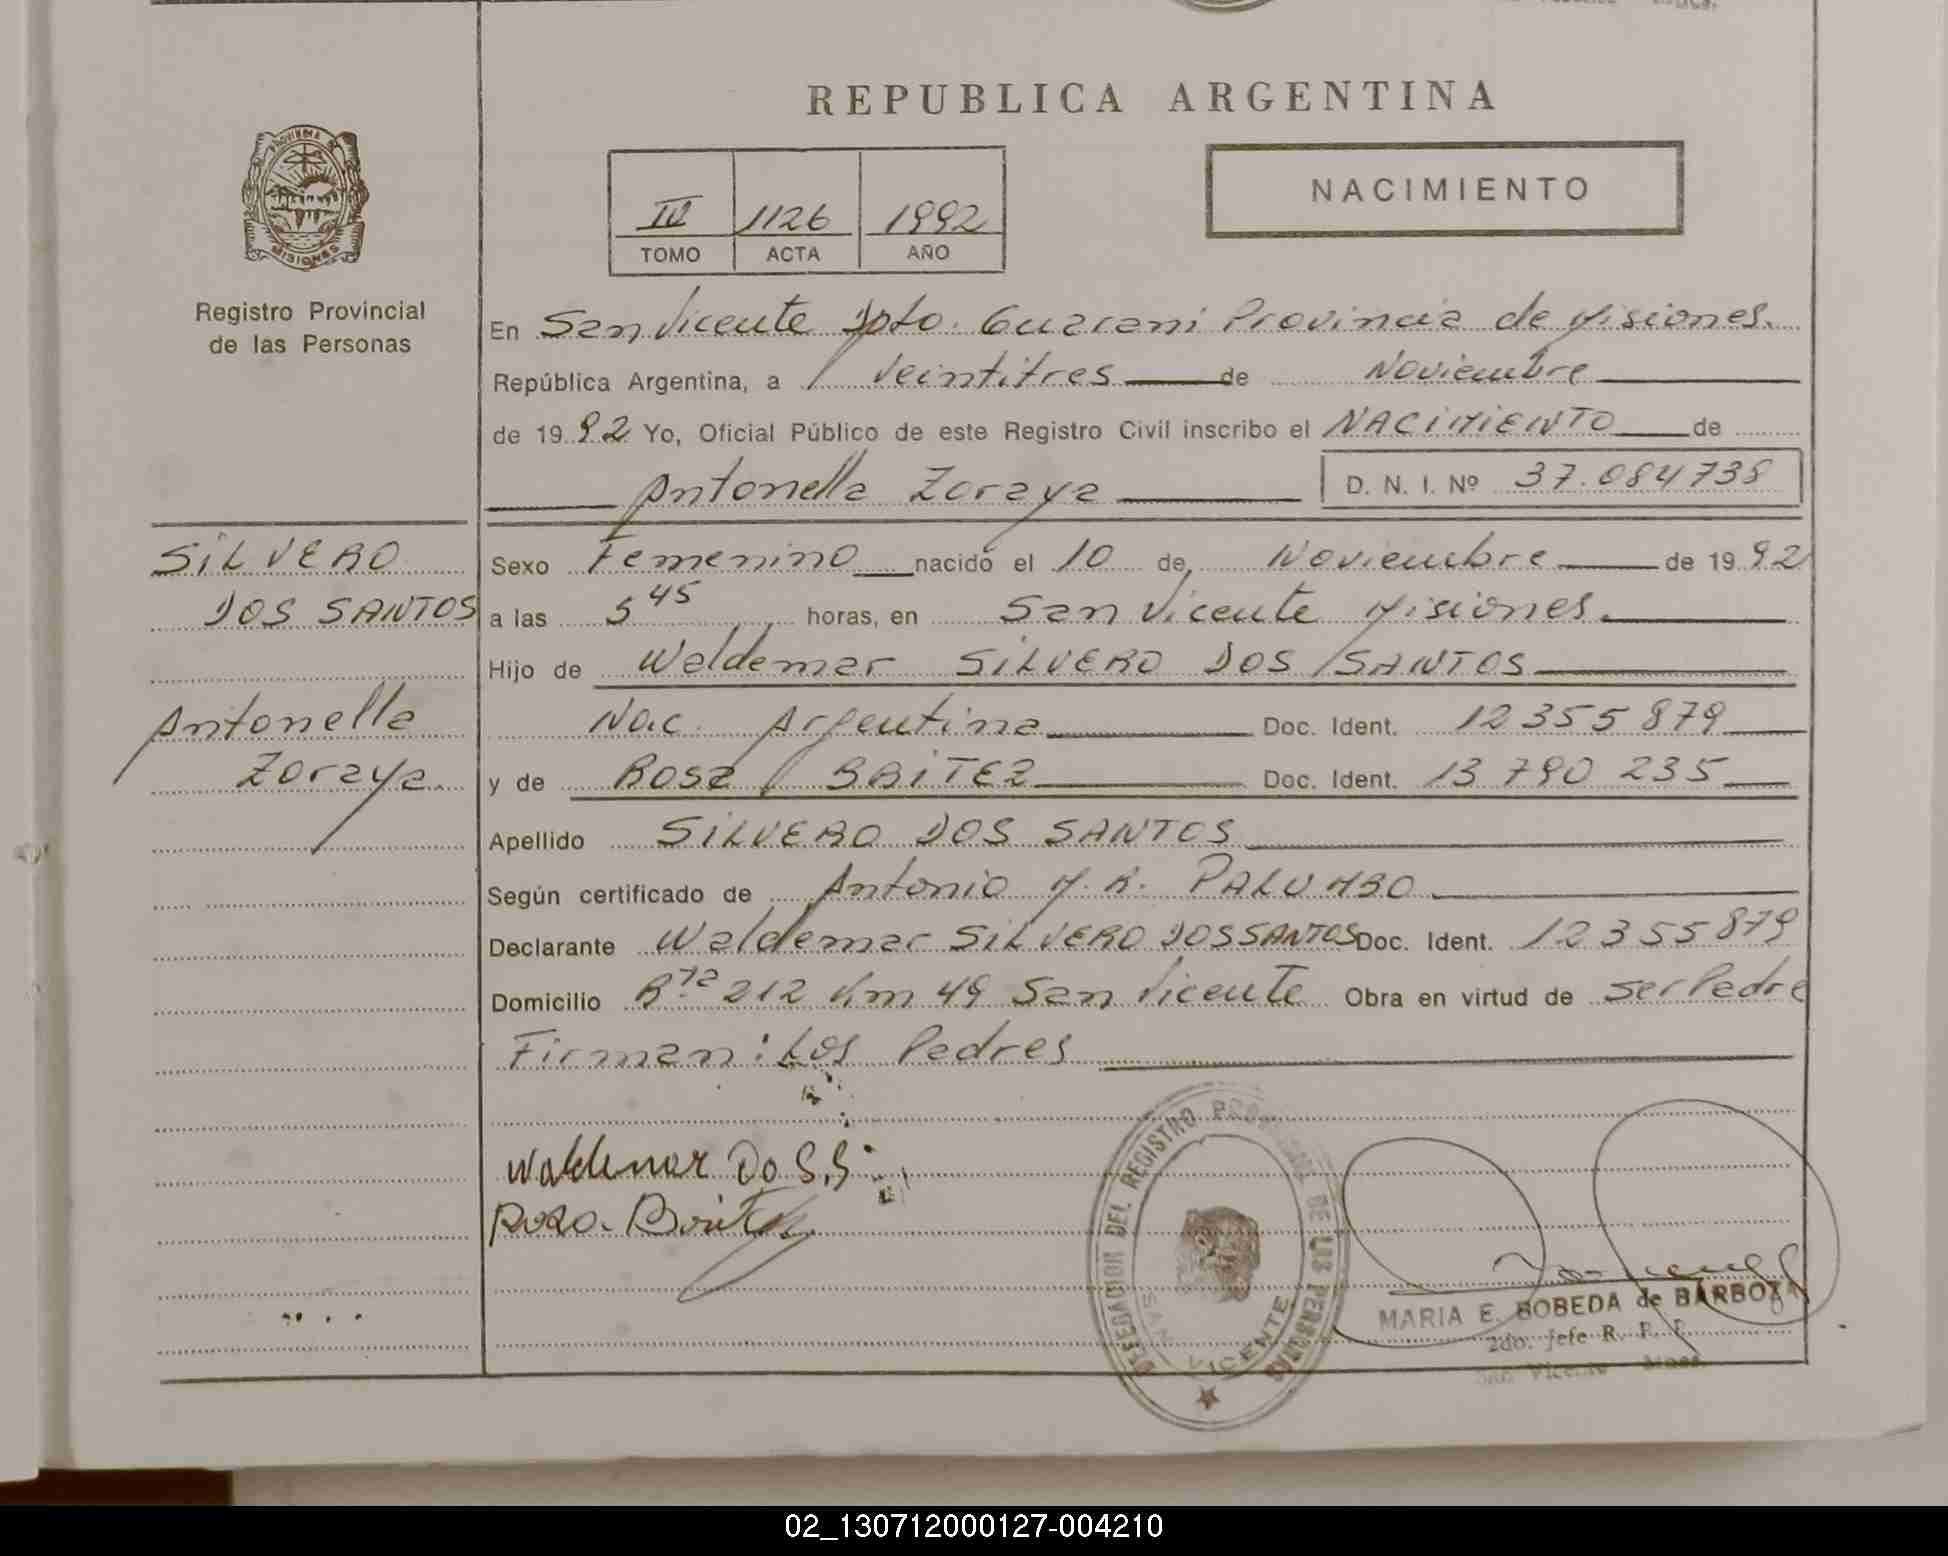 REPUBLICA ARGENTINA
PROVINCIA DE
MISIONES
Registro Provincial
de las Personas
NACIMIENTO
1126 1992
TOMO ACTA AÑO
En San Vicente Dpto. Guarani Provincia de Misiones.
República Argentina, a Veintitres de Noviembre
de 1992 Yo, Oficial Público de este Registro Civil inscribo el NACIMIENTO de
Antonella Zoraya D. N. I. Nº 37.084738
SILVERO
DOS SANTOS
Antonella
Zoraya.
Sexo Femenino nacido el 10 de Noviembre de 1992
a las 5 45 horas, en San Vicente Misiones.
Hijo de Waldemar SILVERO DOS SANTOS
Nac. Argentina Doc. Ident. 12355879
y de Rosa BAITEZ Doc. Ident. 13 790 235
Apellido SILVERO DOS SANTOS
Según certificado de Antonio M. R. PALUMBO
Declarante Waldemar SILVERO DOS SANTOS Doc. Ident. 12355879
Domicilio R.ta 212 Km 49 San Vicente Obra en virtud de ser Padre
Firman: Los Padres
Waldemar Do S.S
Rosa Baitez
DELEGACION DEL REGISTRO PROVINCIAL DE LAS PERSONAS
SAN VICENTE
MARIA E. BOBEDA de BARBOZA
2do. Jefe R. P. P.
San Vicente Mnes.
02_130712000127-004210